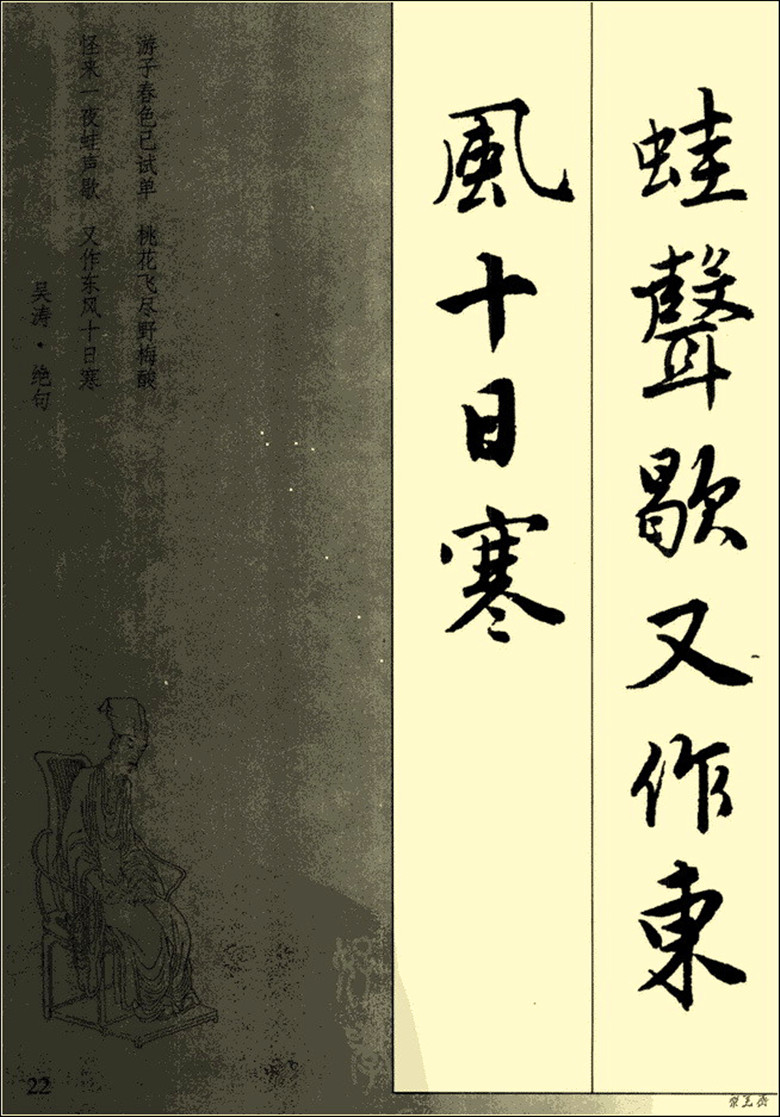 蛙聲歇又作東
風十日寒
游子春色已试单　桃花飞尽野梅酸
怪来一夜蛙声歇　又作东风十日寒
吴涛·绝句
22